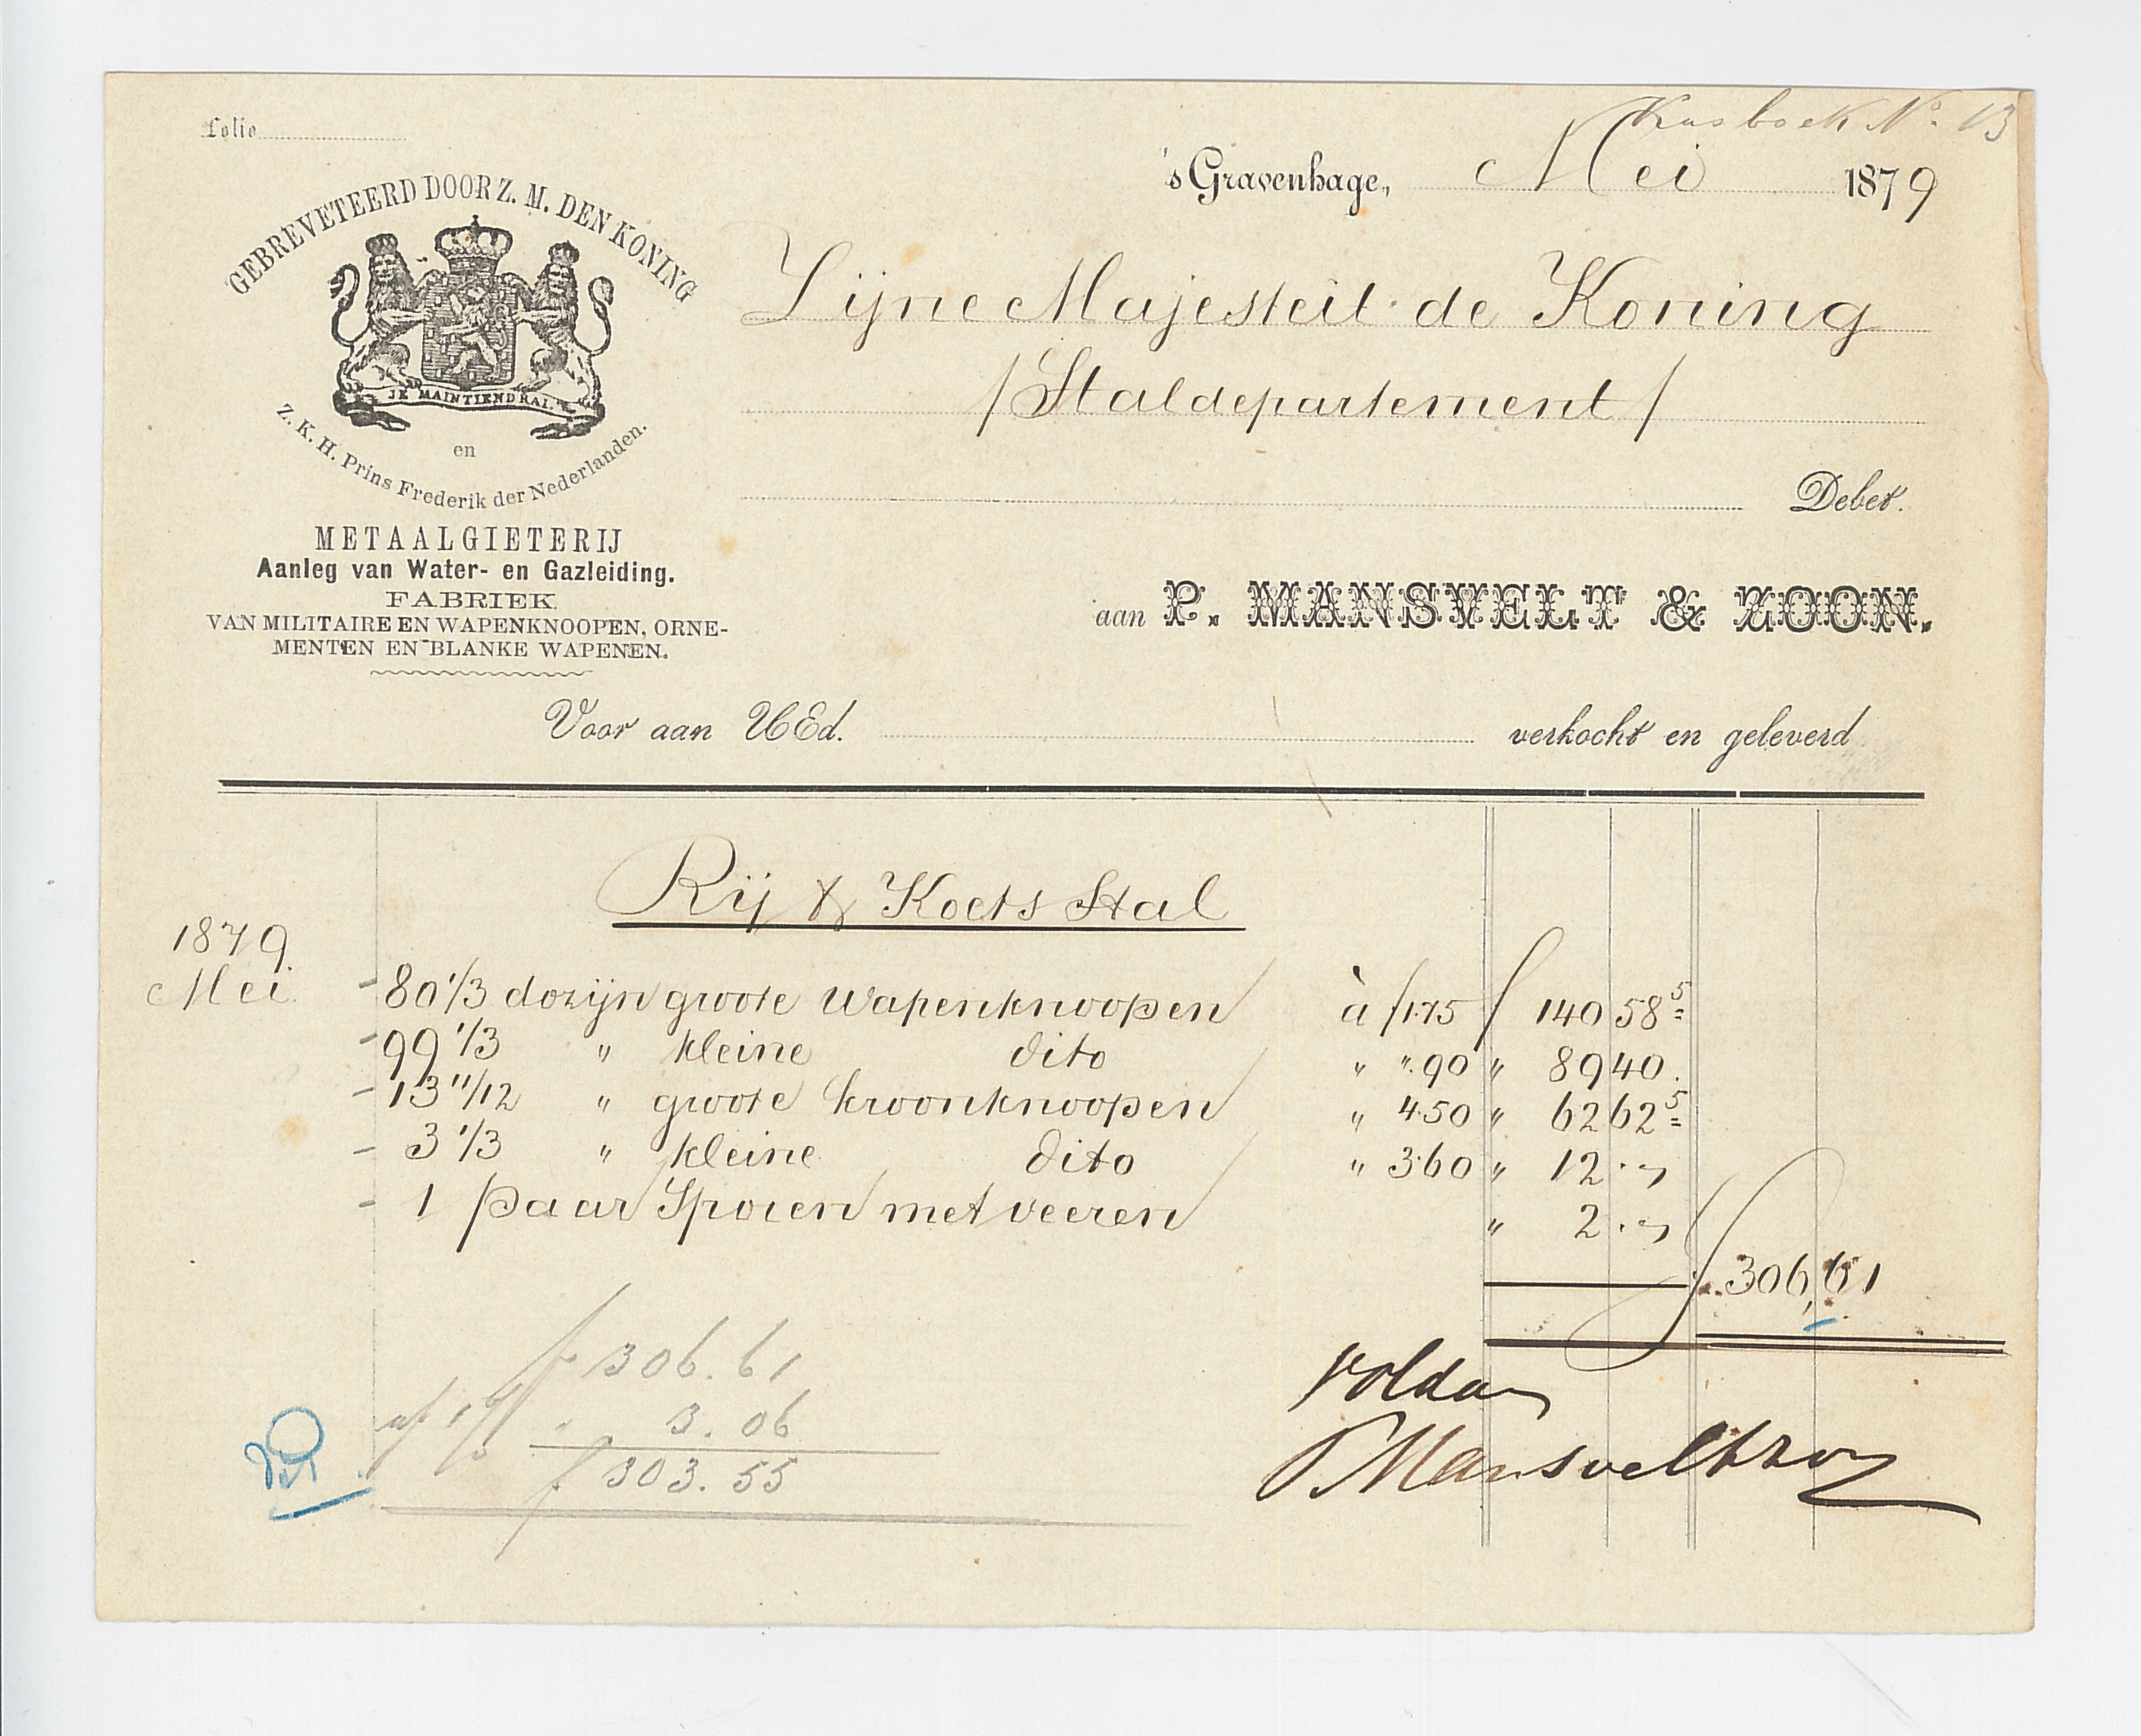 Kasboek No. 13
Folio
's Gravenhage, Mei 1879
GEBREVETEERD DOOR Z. M. DEN KONING
JE MAINTIENDRAI.
en
Z. K. H. Prins Frederik der Nederlanden.
Zijne Majesteit de Koning
/Staldepartement/
Debet.
METAALGIETERIJ
Aanleg van Water- en Gazleiding.
FABRIEK
VAN MILITAIRE EN WAPENKNOOPEN, ORNE-
MENTEN EN BLANKE WAPENEN.
aan P. MANSVELT & ZOON.
Voor aan UEd. verkocht en geleverd
Rij & Koets Stal
1879.
Mei - 80 1/3 dozijn groote Wapenknoopen à ƒ1.75 ƒ 140 58 5
- 99 1/3 " kleine dito " ".90 " 89 40.
- 13 11/12 " groote kroonknoopen " 4.50 " 62 62 5
- 3 1/3 " kleine dito " 3.60 " 12 . "
- 1 paar Sporen met veeren " 2 . "
ƒ 306,61
ƒ 306.61
af 1% " 3.06
ƒ 303.55
Voldaan
P Mansvelt & Zoon